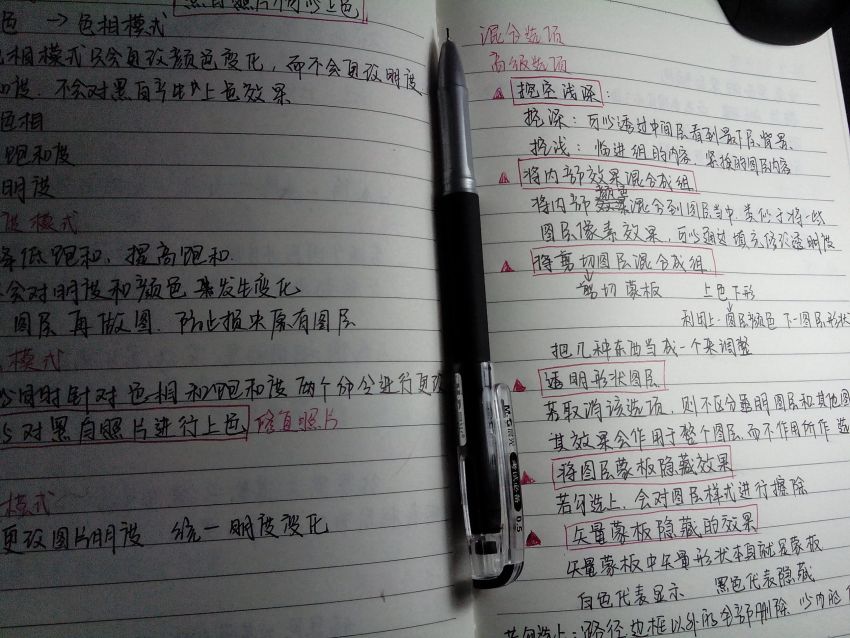 黑白照片不可以上色
色 → 色相模式
色相模式只会更改颜色变化，而不会更改明度
和度。不会对黑白产生上色效果
色相
饱和度
明度
度模式
降低饱和，提高饱和.
会对明度和颜色 发生变化
图层 再做图. 防止损失原有图层
模式
以同时针对色相和饱和度 两个部分进行更改
以对黑白照片进行上色, 修复照片
模式
更改图片明度 统一明度变化
混合选项
高级选项
挖空浅深:
挖深: 可以透过中间层看到最下层背景.
挖浅: 临进组的内容. 紧挨的图层内容
将内部效果混合成组
将内部 混合到图层当中. 类似于将一些
图层像素效果. 可以通过填充修改透明度
将剪切图层混合成组
剪切蒙板 上色下形
利用上一图层颜色 下一图层形状
把几种东西当成一个来调整
透明形状图层
若取消该选项, 则不区分透明图层和其他图
其效果会作用于整个图层. 而不作用所作选
将图层蒙板隐藏效果
若勾选上. 会对图层样式进行擦除
矢量蒙板隐藏的效果
矢量蒙板中矢量形状本身就是蒙板
白色代表显示 黑色代表隐藏
若勾选上: 路径边框以外部分全部删除
M&G
0.5